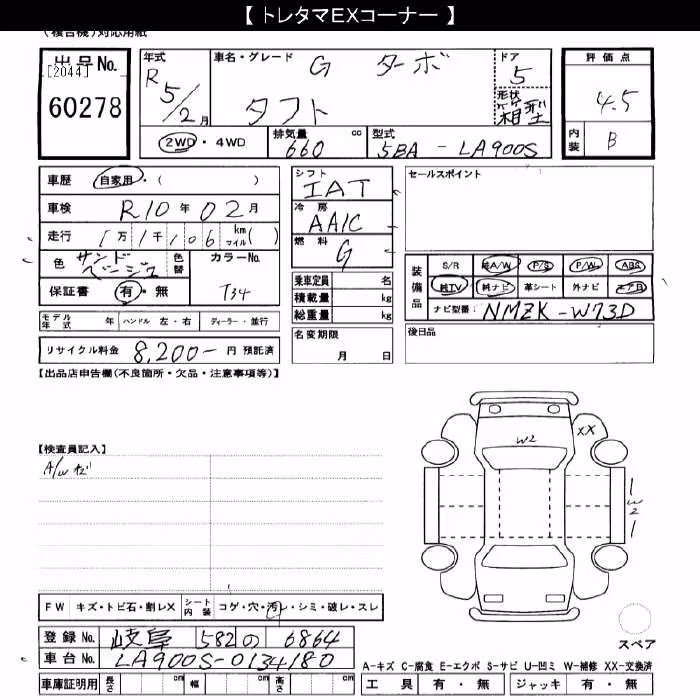 【 トレタマEXコーナー 】
(複合機)対応用紙
出品No. [2044] 60278
年式 R5/2月 車名・グレード G ターボ タフト ドア 5 形状 箱型
評価点 4.5 内装 B
2WD・4WD 排気量 660 cc 型式 5BA - LA900S
車歴 自家用・( )
車検 R10年 02月
走行 1万1千106 km マイル( )
色 サンドベージュ 色替 カラーNo. T34
保証書 有・無
シフト IAT
冷房 AAIC
燃料 G
乗車定員 名
積載量 kg
総重量 kg
セールスポイント
装備品 S/R 純A/W P/S P/W ABS
純TV 純ナビ 革シート 外ナビ エアB
ナビ型番: NMZK-W73D
モデル年式 年 ハンドル 左・右 ディーラー・並行
名変期限 月 日
後日品
リサイクル料金 8,200- 円 預託済
【出品店申告欄(不良箇所・欠品・注意事項等)】
【検査員記入】
A/W キズ
W2
XX
W2
FW キズ・トビ石・割レX シート内装 コゲ・穴・汚レ・シミ・破レ・スレ
登録No. 岐阜 582 の 6864
車台No. LA900S-0134180
スペア
A-キズ C-腐食 E-エクボ S-サビ U-凹ミ W-補修 XX-交換済
車庫証明用 長さ cm 幅 cm 高さ cm
工具 有・無 ジャッキ 有・無